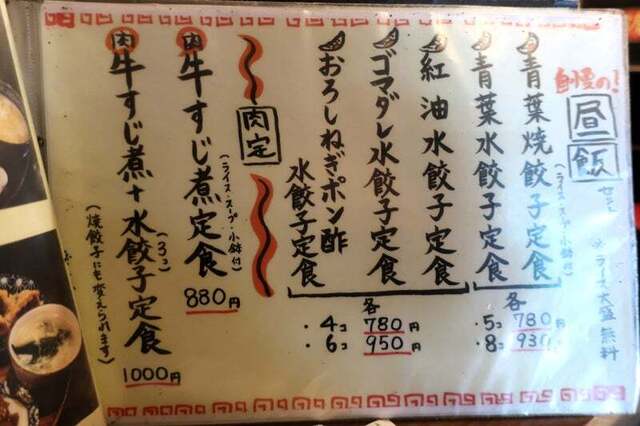 自慢の!
昼飯
セット
※ライス大盛無料
青葉焼餃子定食
(ライス・スープ・小鉢付)
青葉水餃子定食
各
・5コ 780円
・8コ 930円
紅油水餃子定食
ゴマダレ水餃子定食
おろしねぎポン酢
水餃子定食
各
・4コ 780円
・6コ 950円
肉定
肉 牛すじ煮定食
(ライス・スープ・小鉢付)
880円
肉 牛すじ煮+水餃子定食
(3コ)
(焼餃子にも変えられます)
1000円